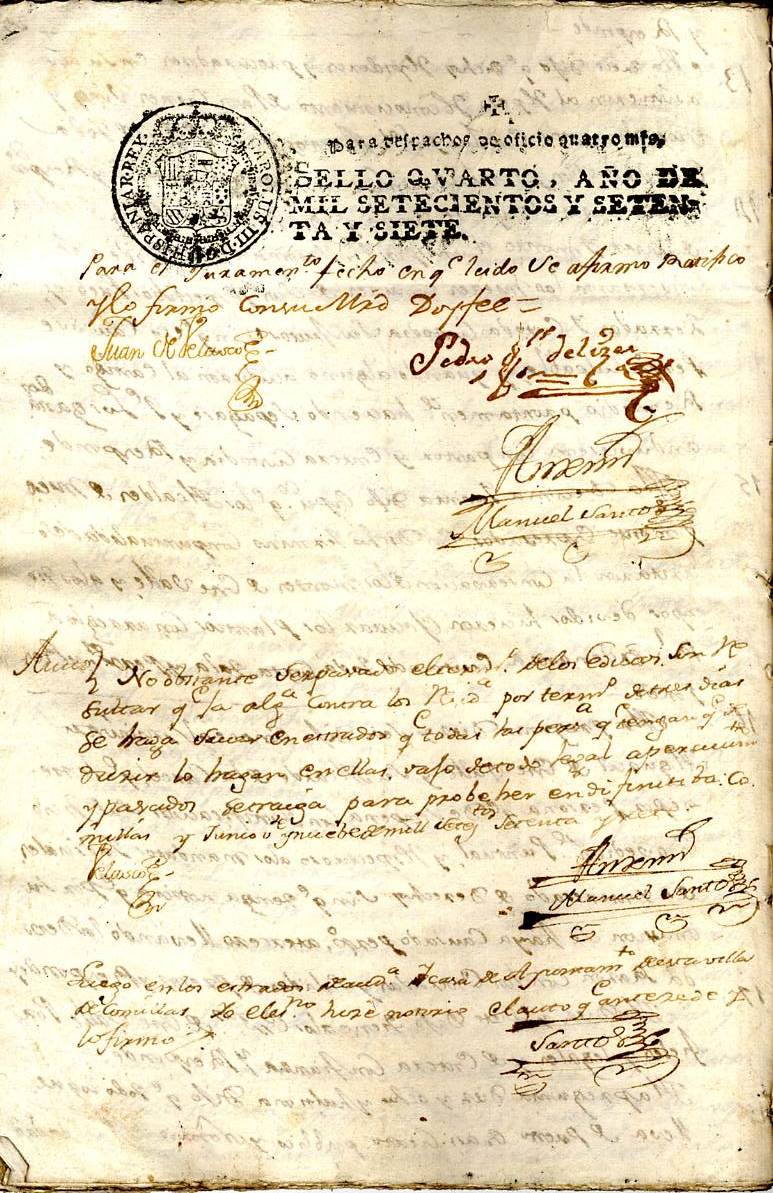 Para despachos de oficio quatro mrs.
SELLO QVARTO, AÑO DE
MIL SETECIENTOS Y SETEN-
TA Y SIETE.
CAROLUS III D G HISPANIAR REX
Para el Juramento fecho en qe leido se afirmo Ratifico
y lo firmo Con su Mrd Doyfee =
Juan de Velasco
Pedro
Antemi
Manuel Santos
Auto
No obstante ser pasado el de los Edictos sin Re
sultar qeja algª Contra los por termº de tres dias
se haga saver en estrados qe todas las persª qe tengan qe de
duzir lo hagan en ellas, vajo de todo legal apercivimto
y pasados se traiga para probeher en difinitiba: Co
millas y Junio veinte y nuebe de mill setetos setenta y siete
Velasco
Antemi
Manuel Santos
Luego en los estrados de audª y casa de Ayuntamto de esta villa
de Comillas Yo el esno hize notorio el auto qe antezede y
lo firmo
Santos